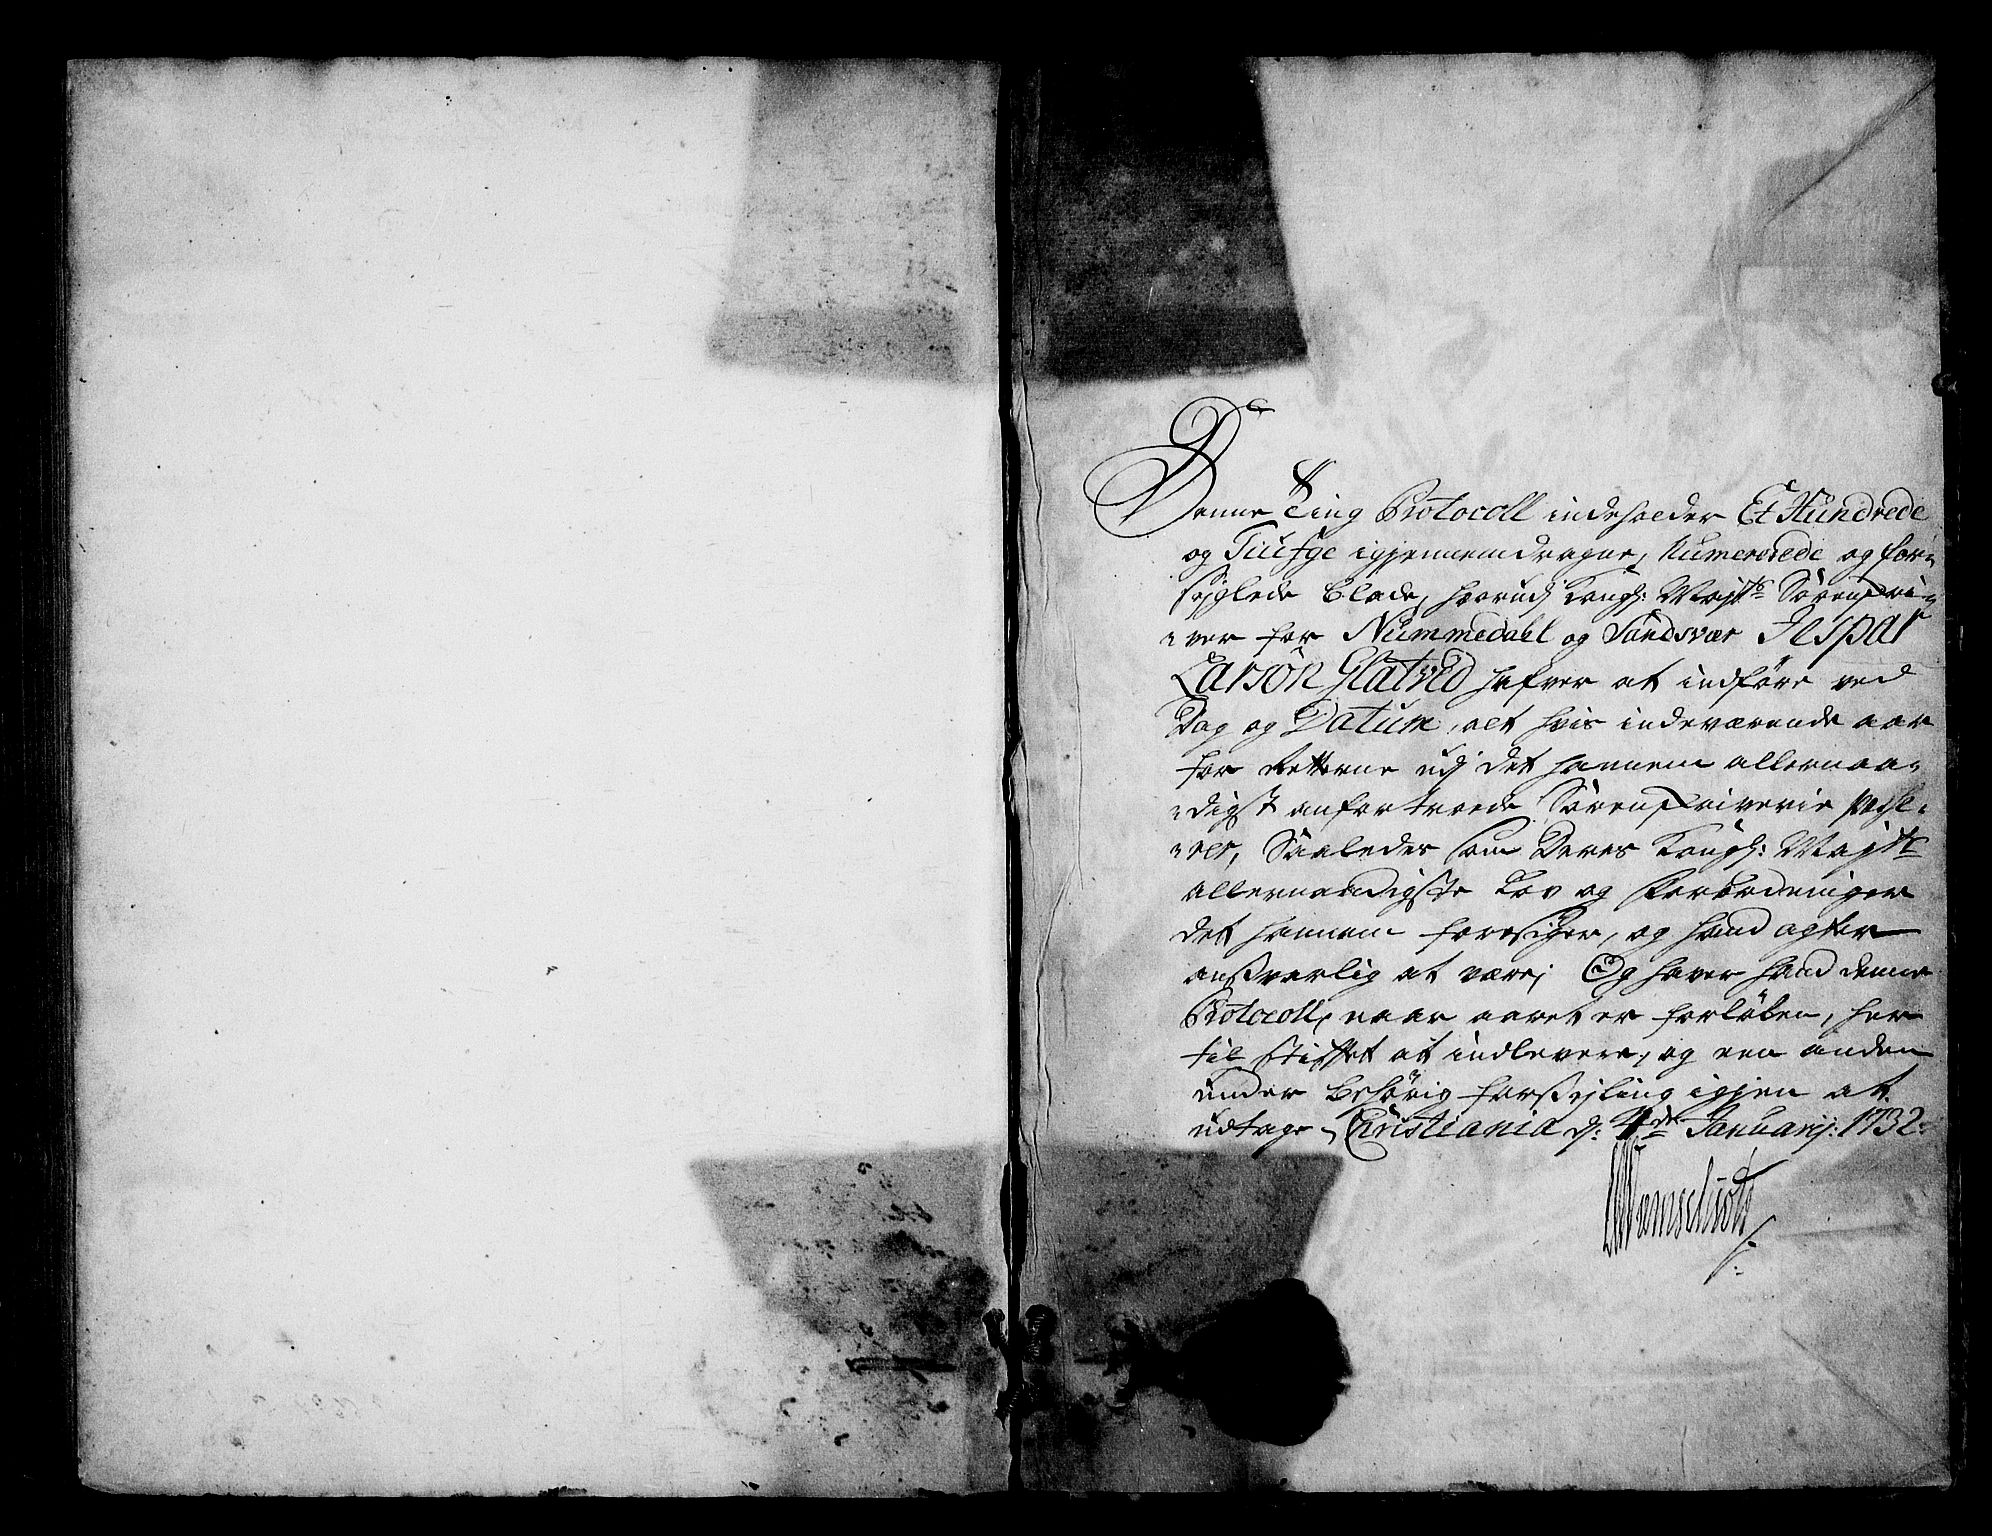 Denne Ting Protocoll indeholder Et Hundrede
og Tiufge igjennemdragne, Numererede og for-
sejglede Blade, hvorudj Kongl: Mayts Sørenskri-
-ver for Nummedahl og Sandsvær Jespar
Larsøn Glatved hafver at indføre ved
Dag og Datum, alt hvis indeværende aar
for Retterne udj det hannem allernaa-
-digst anfortroede Sørenskriverie pas-
Saaledes som Deres Kongl: Mayts
allernaadigste Lov og Forordninger
det hannem foresiger, og hand agter
ansvarlig at være; Og haver hand denne
Protocoll, naar aaret er forløben, her
til Stiftet at indlevere, og een anden
under behørig forsejling igjen at
udtage, Christiania d: Januarij: 1732: